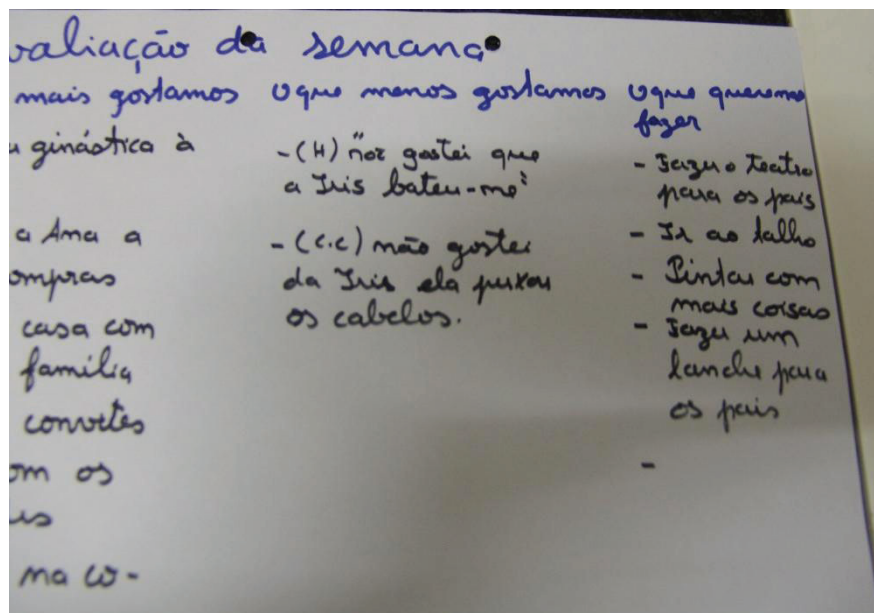 valiação da semana
mais gostamos
ginástica à
a Ana a
ompras
casa com
família
convites
om os
na co-
O que menos gostamos
- (H) "não gostei que
a Iris bateu-me"
- (C.C) não gostei
da Iris ela puxou
os cabelos.
O que queremos
fazer
- Fazer o teatro
para os pais
- Ir ao talho
- Pintar com
mais coisas
- Fazer um
lanche para
os pais
-